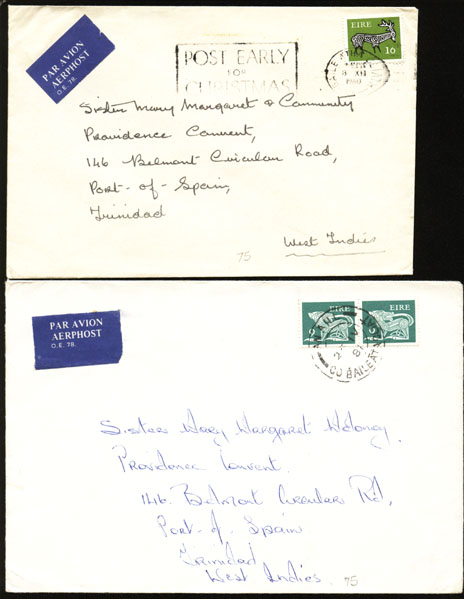 PAR AVION
AERPHOST
O.E. 78.
POST EARLY
FOR
CHRISTMAS
16
8 XII
1980
Sister Mary Margaret & Community
Providence Convent,
146 Belmont Circular Road,
Port-of-Spain,
Trinidad
West Indies
75
PAR AVION
AERPHOST
O.E. 78.
EIRE
EIRE
CO BAILE ATHA
Sister Mary Margaret
Providence Convent.
146 Belmont Circular Rd,
Port-of-Spain
Trinidad
West Indies.
75